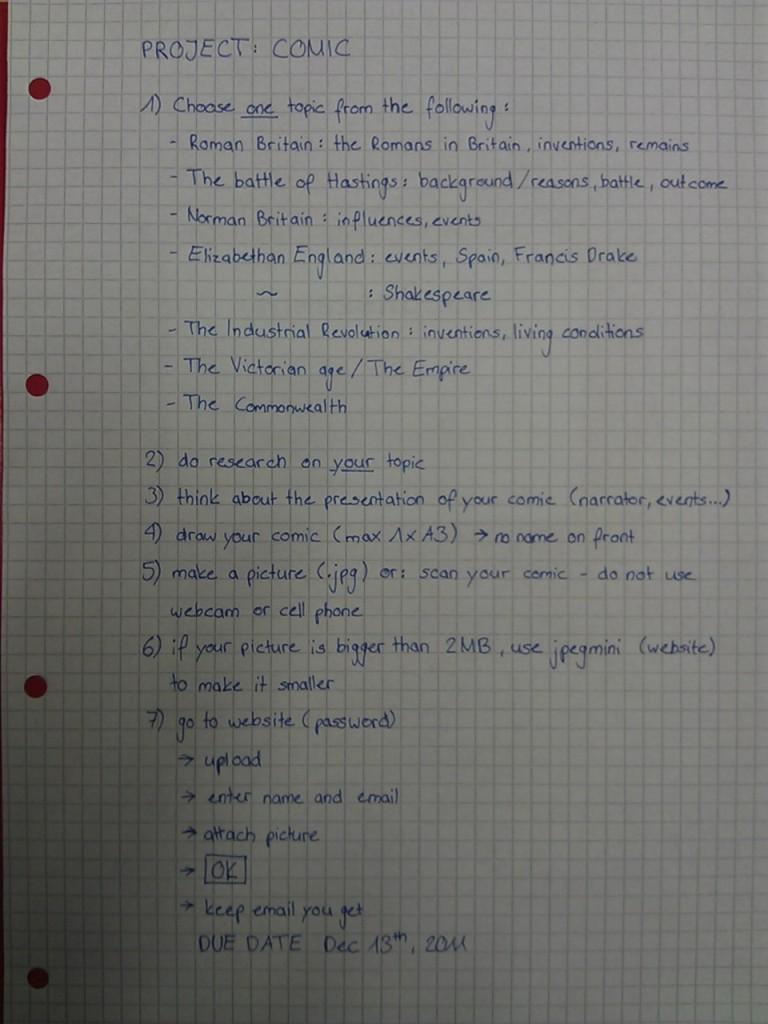 PROJECT: COMIC
1) Choose one topic from the following:
- Roman Britain: the Romans in Britain, inventions, remains
- The battle of Hastings: background/reasons, battle, outcome
- Norman Britain: influences, events
- Elizabethan England: events, Spain, Francis Drake
~ : Shakespeare
- The Industrial Revolution: inventions, living conditions
- The Victorian age/The Empire
- The Commonwealth
2) do research on your topic
3) think about the presentation of your comic (narrator, events...)
4) draw your comic (max 1xA3) → no name on front
5) make a picture (.jpg) or: scan your comic - do not use
webcam or cell phone
6) if your picture is bigger than 2MB, use jpegmini (website)
to make it smaller
7) go to website (password)
→ upload
→ enter name and email
→ attach picture
→ OK
→ keep email you get
DUE DATE Dec 13th, 2011